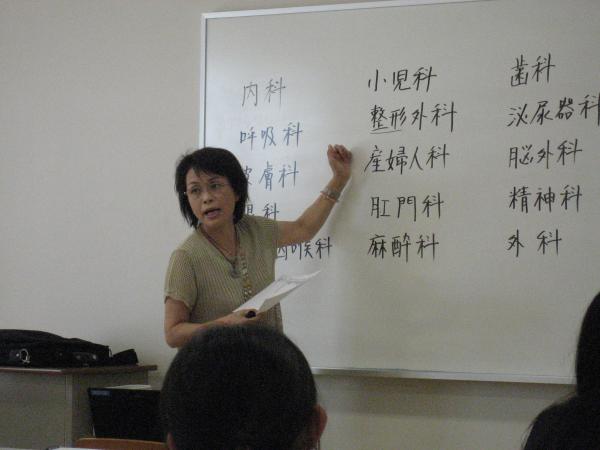 内科
呼吸科
皮膚科
眼科
咽喉科
小児科
整形外科
産婦人科
肛門科
麻酔科
歯科
泌尿器科
脳外科
精神科
外科